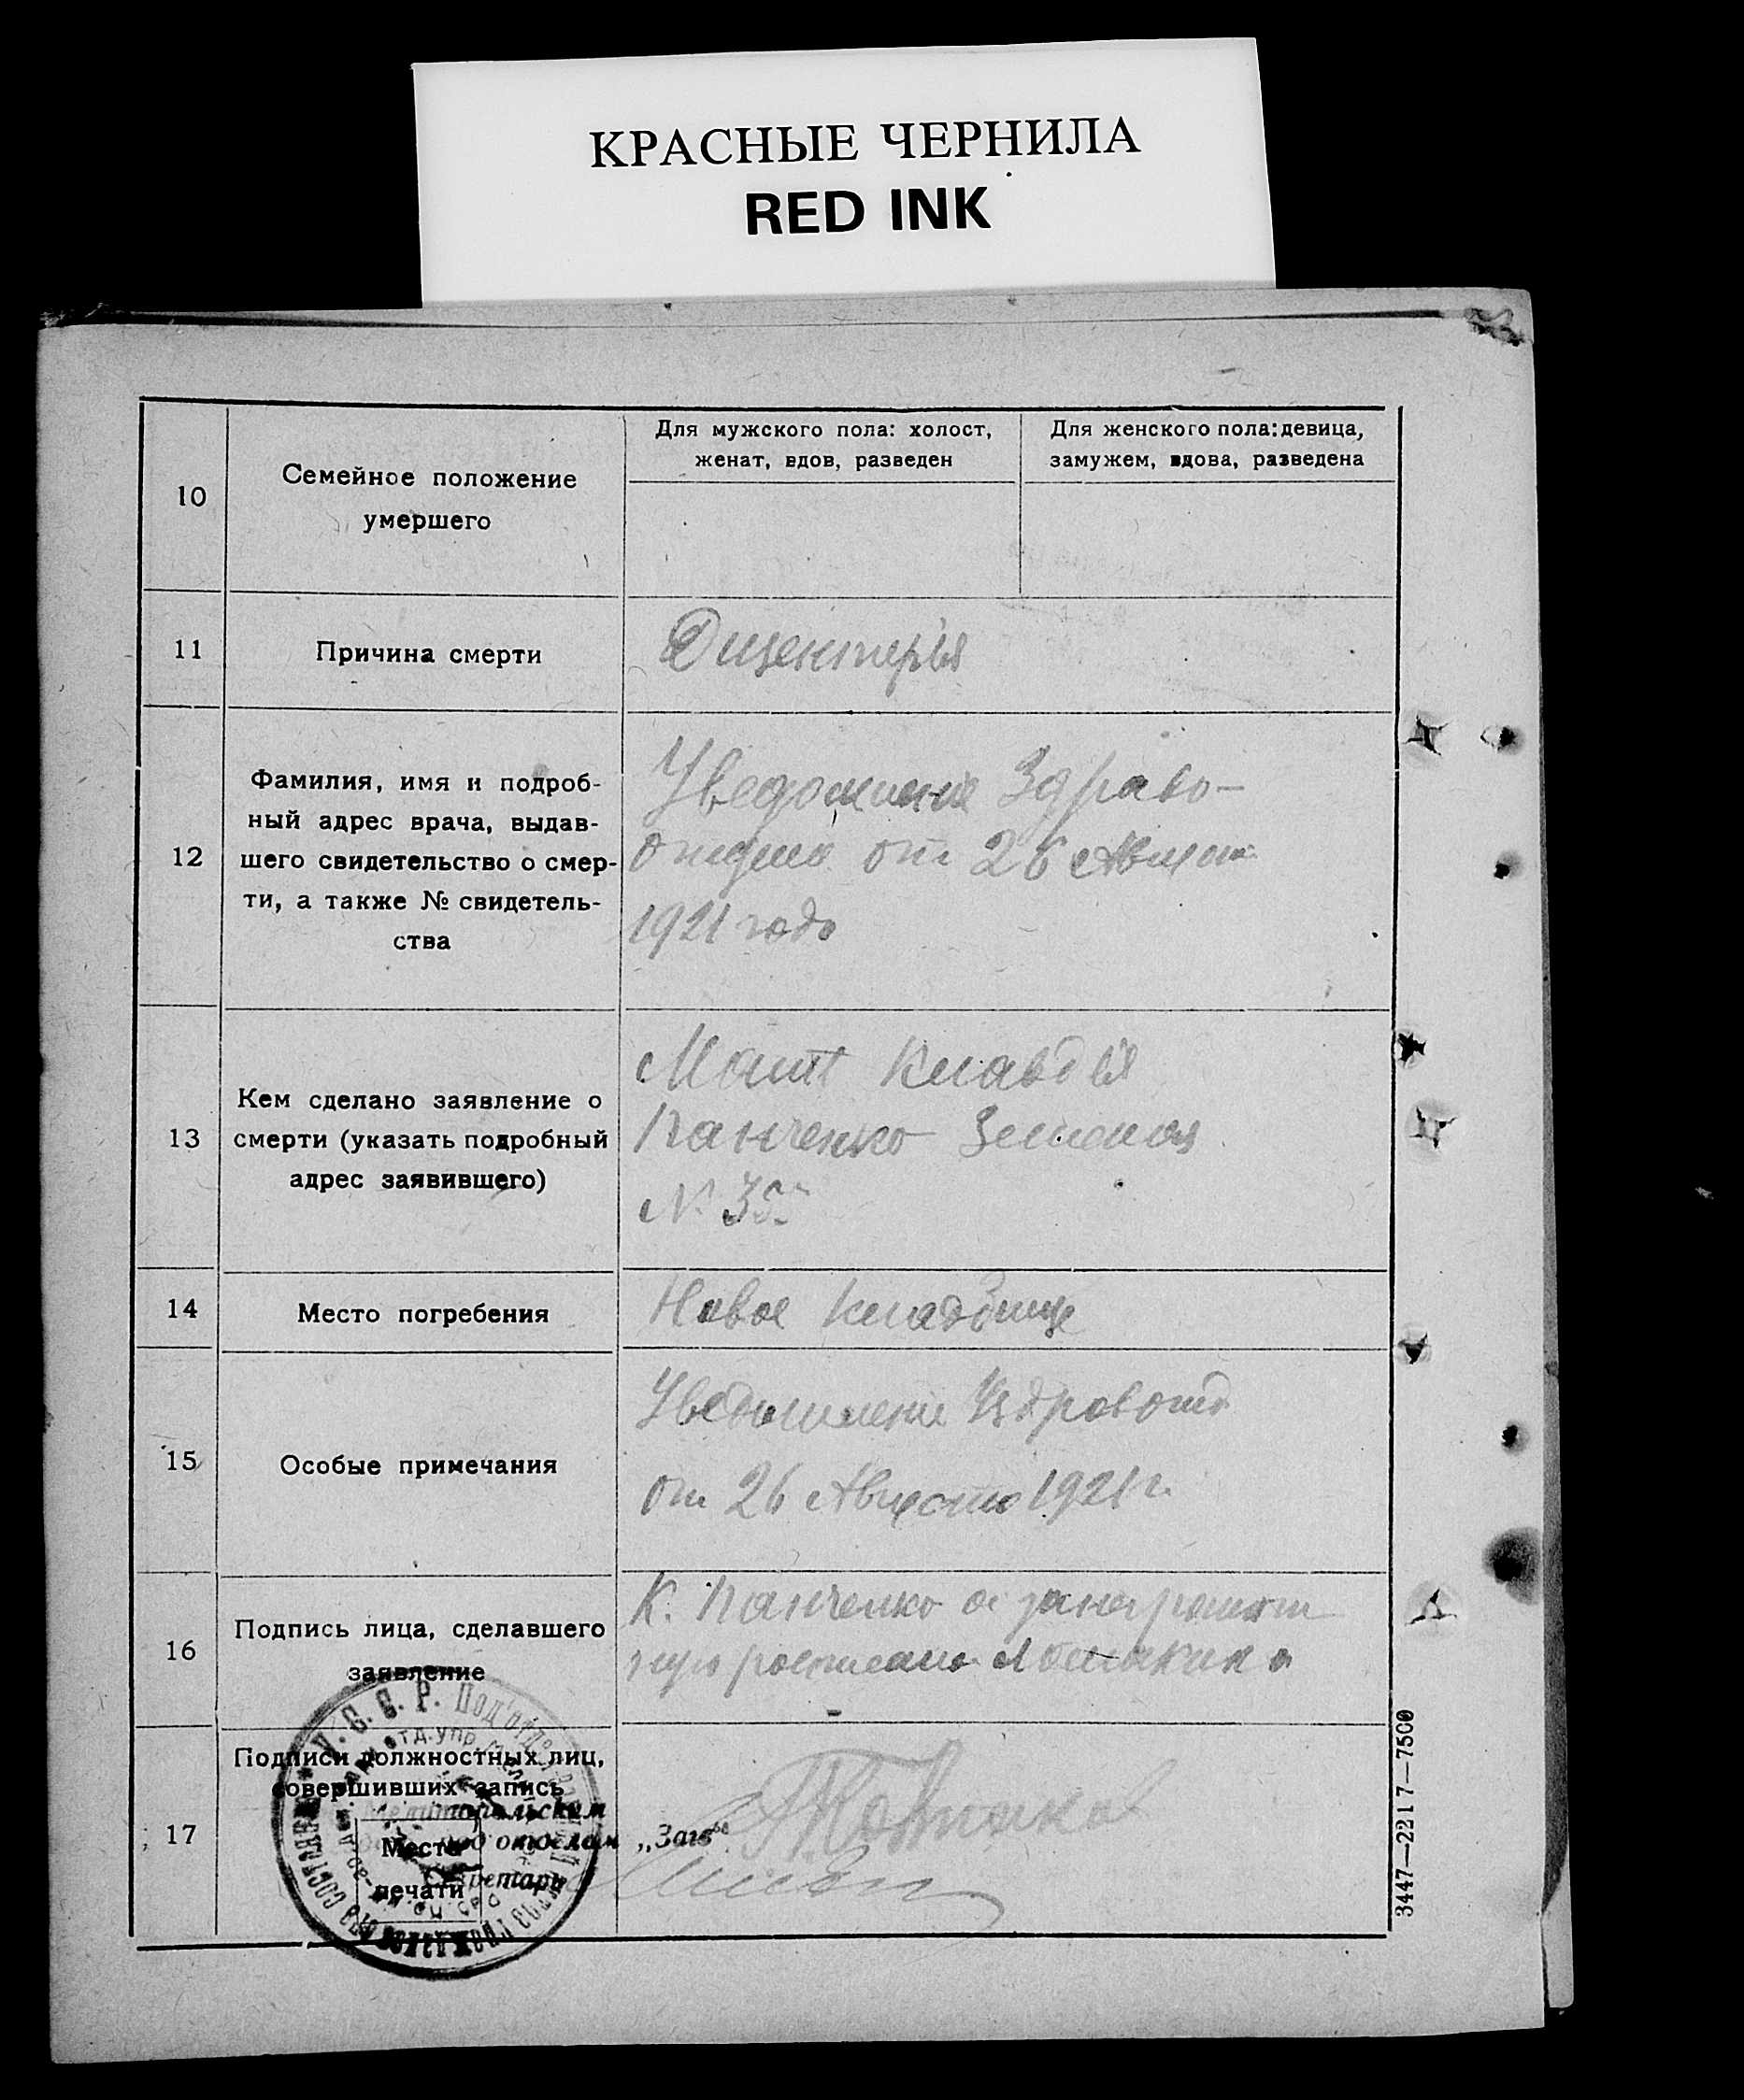 КРАСНЫЕ ЧЕРНИЛА
RED INK
10
Семейное положение
умершего
Для мужского пола: холост,
женат, вдов, разведен
Для женского пола: девица,
замужем, вдова, разведена
11
Причина смерти
Дизентерья
12
Фамилия, имя и подроб-
ный адрес врача, выдав-
шего свидетельство о смер-
ти, а также № свидетель-
ства
Уведомление Здраво-
отдела от 26 Августа
1921 года
13
Кем сделано заявление о
смерти (указать подробный
адрес заявившего)
Мать Клавдья
Панченко
№
14
Место погребения
Новое кладбище
15
Особые примечания
Уведомление
от 26 Августа 1921 г.
16
Подпись лица, сделавшего
заявление
К. Панченко а
17
Подписи должностных лиц,
совершивших запись
Мелитопольским
под отделам „Загс"
Секретарь
Место
печати
3447—2217—7500